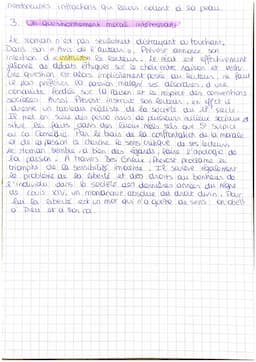 nombreuses infractions qui leurs collent à sa peau.
3. Un questionnement moral intéressant
Le roman n'est pas seulement distrayant ou touchant.
Dans son « Avis de l'auteur », Prévost annonce son
intention d'instruire le lecteur. Le récit est effectivement
jalonné de débats éthiques sur le choix entre raison et vertu.
Une question est alors implicitement posée au lecteur : ne faut
il pas préférer la passion malgré ses désordres à une
conduite fondée sur la raison et le respect des conventions
sociales. Aussi Prévost instruit son lecteur, en effet il
dresse un tableau réaliste de la société du siècle.
Il met en scène des perso issus de plusieurs milieux sociaux et
situe les faits dans des lieux réels tels que St Sulpice
ou la Comédie. Par le biais de la confrontation de la morale
et de la passion il cherche le sens critique de ses lecteurs
Le roman semble, à bien des égards, faire l'apologie de
la passion. A travers Des Grieux, Prévost proclame le
triomphe de la sensibilité. Il soulève également
le problème de la liberté et des droits au bonheur de
l'individu dans la société des dernières années du règne
de Louis XIV, un monarque absolu de droit divin. Pour
lui la liberté est un mot qui n'a guère de sens, on obéit
à Dieu et à son roi.